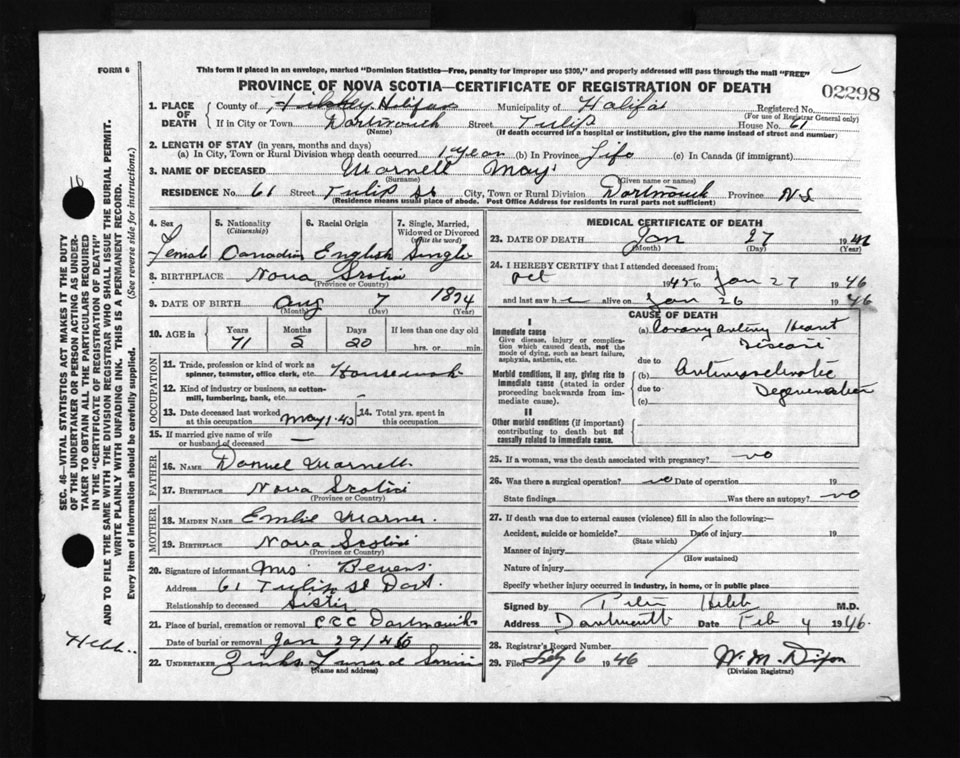 FORM 6
This form if placed in an envelope, marked "Dominion Statistics—Free, penalty for improper use $300," and properly addressed will pass through the mail "FREE"
PROVINCE OF NOVA SCOTIA—CERTIFICATE OF REGISTRATION OF DEATH
02298
1. PLACE OF DEATH
County of Halifax Municipality of Halifax Registered No.
(For use of Registrar General only)
If in City or Town Dartmouth Street Tulip House No. 61
(Name) (If death occurred in a hospital or institution, give the name instead of street and number)
2. LENGTH OF STAY (in years, months and days)
(a) In City, Town or Rural Division where death occurred 1 year (b) In Province Life (c) In Canada (if immigrant)
3. NAME OF DECEASED Marnell May
(Surname) (Given name or names)
RESIDENCE No. 61 Street Tulip St City, Town or Rural Division Dartmouth Province N S
(Residence means usual place of abode. Post Office Address for residents in rural parts not sufficient)
4. Sex 5. Nationality (Citizenship) 6. Racial Origin 7. Single, Married, Widowed or Divorced (Write the word)
Female Canadian English Single
8. BIRTHPLACE Nova Scotia
(Province or Country)
9. DATE OF BIRTH Aug 7 1874
(Month) (Day) (Year)
10. AGE in Years Months Days If less than one day old
71 5 20 hrs. or min.
OCCUPATION
11. Trade, profession or kind of work as spinner, teamster, office clerk, etc. Housework
12. Kind of industry or business, as cotton-mill, lumbering, bank, etc. —
13. Date deceased last worked at this occupation May 1-45 14. Total yrs. spent in this occupation
15. If married give name of wife or husband of deceased —
FATHER
16. NAME Daniel Marnell
17. BIRTHPLACE Nova Scotia
(Province or Country)
MOTHER
18. MAIDEN NAME Emlie Warner.
19. BIRTHPLACE Nova Scotia
(Province or Country)
20. Signature of informant Mrs Bevers
Address 61 Tulip St Dart.
Relationship to deceased Sister
21. Place of burial, cremation or removal Dartmouth
Date of burial or removal Jan 29/46
22. UNDERTAKER Zinks Funeral Service
(Name and address)
MEDICAL CERTIFICATE OF DEATH
23. DATE OF DEATH Jan 27 1946
(Month) (Day) (Year)
24. I HEREBY CERTIFY that I attended deceased from:
Oct 1945 to Jan 27 1946
and last saw h er alive on Jan 26 1946
CAUSE OF DEATH
I
Immediate cause
Give disease, injury or complication which caused death, not the mode of dying, such as heart failure, asphyxia, asthenia, etc.
(a) Coronary Artery Heart Disease
due to
Morbid conditions, if any, giving rise to immediate cause (stated in order proceeding backwards from immediate cause).
(b) Arteriosclerotic
due to Degeneration
(c)
II
Other morbid conditions (if important) contributing to death but not causally related to immediate cause.
25. If a woman, was the death associated with pregnancy? No
26. Was there a surgical operation? No Date of operation 19
State findings Was there an autopsy? No
27. If death was due to external causes (violence) fill in also the following:—
Accident, suicide or homicide? Date of injury 19
(State which)
Manner of injury
(How sustained)
Nature of injury
Specify whether injury occurred in industry, in home, or in public place
Signed by Hebb M.D.
Address Dartmouth Date Feb 4 1946.
28. Registrar's Record Number
29. Filed Feb 6 1946 W. M. Dixon
(Division Registrar)
SEC. 46—VITAL STATISTICS ACT MAKES IT THE DUTY
OF THE UNDERTAKER OR PERSON ACTING AS UNDER-
TAKER TO OBTAIN ALL THE PARTICULARS REQUIRED
IN THE "CERTIFICATE OF REGISTRATION OF DEATH"
AND TO FILE THE SAME WITH THE DIVISION REGISTRAR WHO SHALL ISSUE THE BURIAL PERMIT.
WRITE PLAINLY WITH UNFADING INK. THIS IS A PERMANENT RECORD.
Every item of information should be carefully supplied. (See reverse side for instructions.)
Hebb.